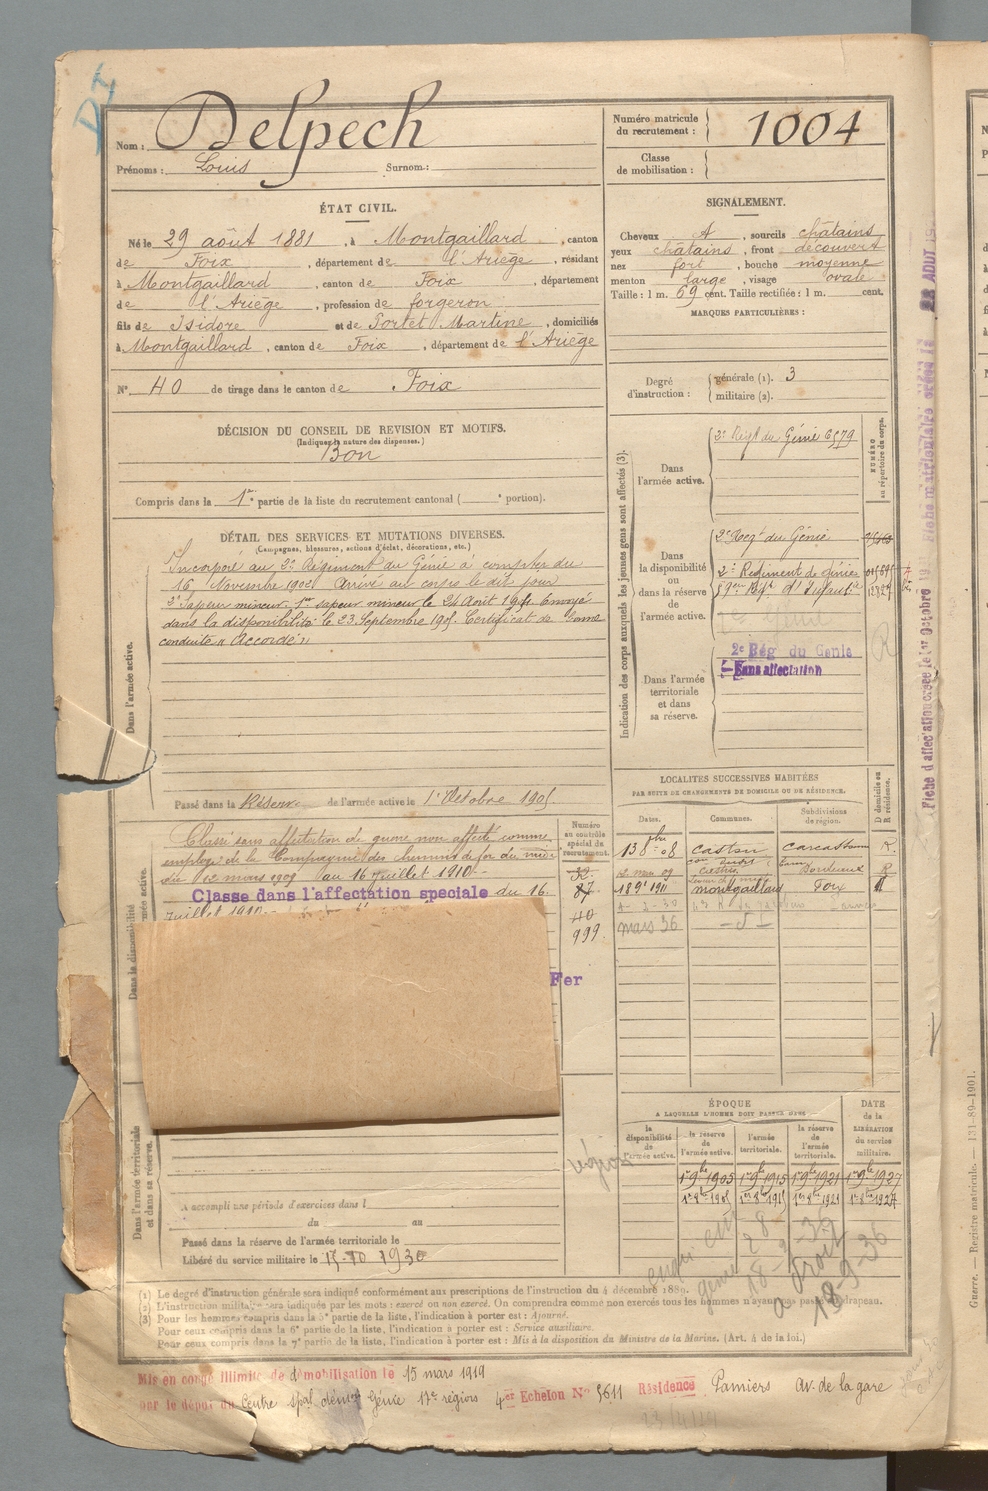 DI
Nom : Delpech
Prénoms : Louis Surnom :
Numéro matricule du recrutement : 1004
Classe de mobilisation :
ÉTAT CIVIL.
Né le 29 août 1881, à Montgaillard, canton
de Foix, département de l'Ariège, résidant
à Montgaillard, canton de Foix, département
de l'Ariège, profession de forgeron
fils de Isidore et de Portet Martine, domiciliés
à Montgaillard, canton de Foix, département de l'Ariège
N° 40 de tirage dans le canton de Foix
SIGNALEMENT.
Cheveux sourcils châtains
yeux châtains, front découvert
nez fort, bouche moyenne
menton large, visage ovale
Taille : 1 m. 69 cent. Taille rectifiée : 1 m. cent.
MARQUES PARTICULIÈRES :
Degré d'instruction : générale (1). 3
militaire (2).
DÉCISION DU CONSEIL DE REVISION ET MOTIFS.
(Indiquer la nature des dispenses.)
Bon
Compris dans la 1re partie de la liste du recrutement cantonal ( e portion).
DÉTAIL DES SERVICES ET MUTATIONS DIVERSES.
(Campagnes, blessures, actions d'éclat, décorations, etc.)
Dans l'armée active.
Incorporé au 2e Régiment du Génie à compter du
16 Novembre 1902 Arrivé au corps le dit jour
2e Sapeur mineur. 1er sapeur mineur le 24 Août 1904. Envoyé
dans la disponibilité le 23 Septembre 1905. Certificat de bonne
conduite "Accordé"
Passé dans la Réserve de l'armée active le 1er Octobre 1905
Indication des corps auxquels les jeunes gens sont affectés (3).
NUMÉRO au répertoire du corps.
Dans l'armée active.
2e Régt du Génie 6579
Dans la disponibilité ou dans la réserve de l'armée active.
2e Régt du Génie
2e Régiment de génie
Dans l'armée territoriale et dans sa réserve.
2e Rég du Genie
Sans affectation
R
Dans la disponibilité
Classé sans affectation de guerre non affecté comme
employé de la Compagnie des chemins de fer du midi
du 12 mars 1909 au 16 juillet 1910.
Classe dans l'affectation speciale du 16
juillet 1910
Fer
Numéro au contrôle spécial du recrutement.
32
87
40
999
LOCALITÉS SUCCESSIVES HABITÉES
PAR SUITE DE CHANGEMENTS DE DOMICILE OU DE RÉSIDENCE.
Dates. Communes. Subdivisions de région. D domicile ou R résidence.
13 8bre 08 Carcassonne R
Bordeaux R
18 9e 1911 montgaillard Foix
mars 36 - d -
ÉPOQUE
A LAQUELLE L'HOMME DOIT PASSER DANS
la disponibilité de l'armée active. la réserve de l'armée active. l'armée territoriale. la réserve de l'armée territoriale.
DATE de la LIBÉRATION du service militaire.
1er 9bre 1905 1er 9bre 1915 1er 9bre 1921 1er 9bre 1927
1er 8bre 1905 1er 8bre 1915 1er 8bre 1921 1er 8bre 1927
18-9-36
Dans l'armée territoriale et dans sa réserve.
A accompli une période d'exercices dans l
du au
Passé dans la réserve de l'armée territoriale le
Libéré du service militaire le 15-10 1930
(1) Le degré d'instruction générale sera indiqué conformément aux prescriptions de l'instruction du 4 décembre 1889.
(2) L'instruction militaire sera indiquée par les mots : exercé ou non exercé. On comprendra comme non exercés tous les hommes n'ayant pas passé au drapeau.
(3) Pour les hommes compris dans la 5e partie de la liste, l'indication à porter est : Ajourné.
Pour ceux compris dans la 6e partie de la liste, l'indication à porter est : Service auxiliaire.
Pour ceux compris dans la 7e partie de la liste, l'indication à porter est : Mis à la disposition du Ministre de la Marine. (Art. 4 de la loi.)
Mis en congé illimité de démobilisation le 15 mars 1919
par le dépôt du Centre spal démon Génie 17e région 4er Echelon N° 5611 Résidence Pamiers Av. de la gare
Fiche d'affectation créée le 1er Octobre 19
Fiche matriculaire créée le 28 AOUT
Guerre. — Registre matricule. — 131-89-1901.